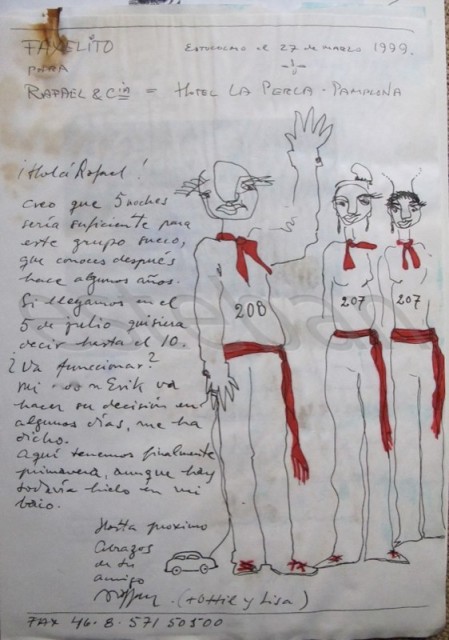 FAXELITO
Estocolmo el 27 de marzo 1999.
para
-1-
RAFAEL & Cia = HOTEL LA PERLA - PAMPLONA
¡Holá Rafael!
Creo que 5 noches
sería suficiente para
este grupo sueco,
que conoces después
hace algunos años.
Si llegamos en el
5 de julio quisiera
decir hasta el 10.
¿Va funcionar?
mi Erik va
hacer su decisión en
algunos días, me ha
dicho.
Aquí tenemos finalmente
primavera, aunque hay
todavía hielo en mi
208
207
207
Hasta proximo
Abrazos
de tu
amigo
(+ Ottil y Lisa)
FAX 46.8.571 50500